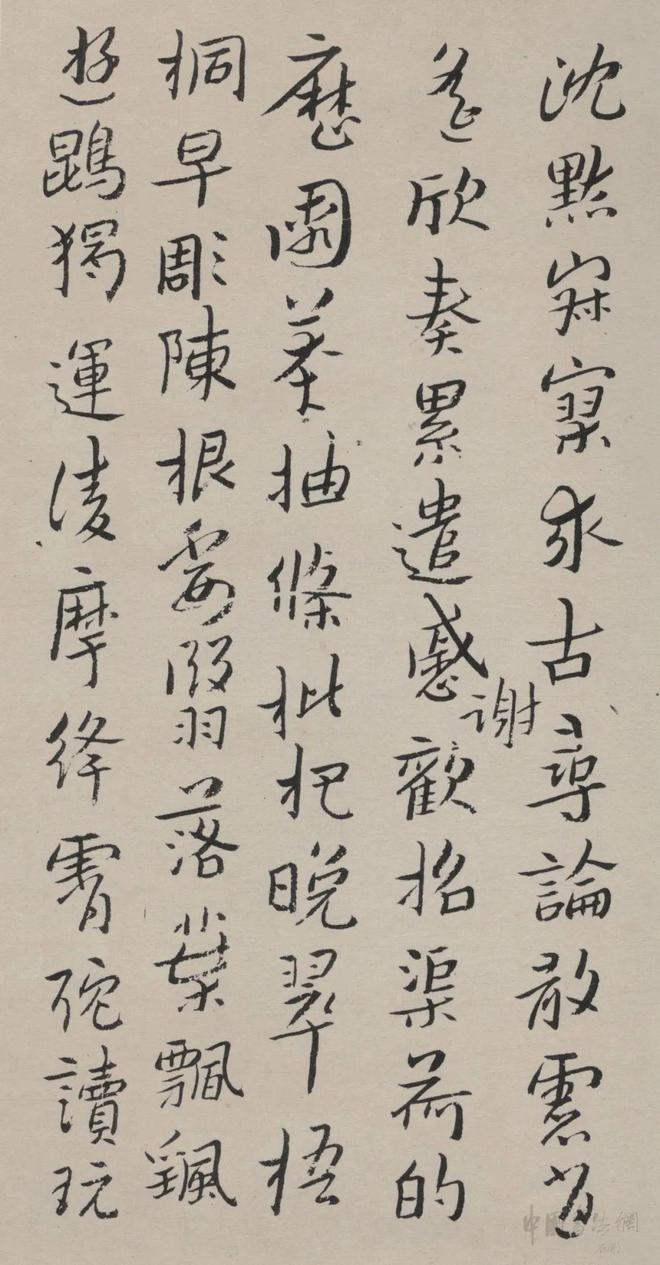 沈默寂寥求古尋論散慮逍
遙欣奏累遣慼謝歡招渠荷的
歷園莽抽條枇杷晚翠梧
桐早彫陳根委翳落葉飄颻
遊鵾獨運淩摩絳霄耽讀玩